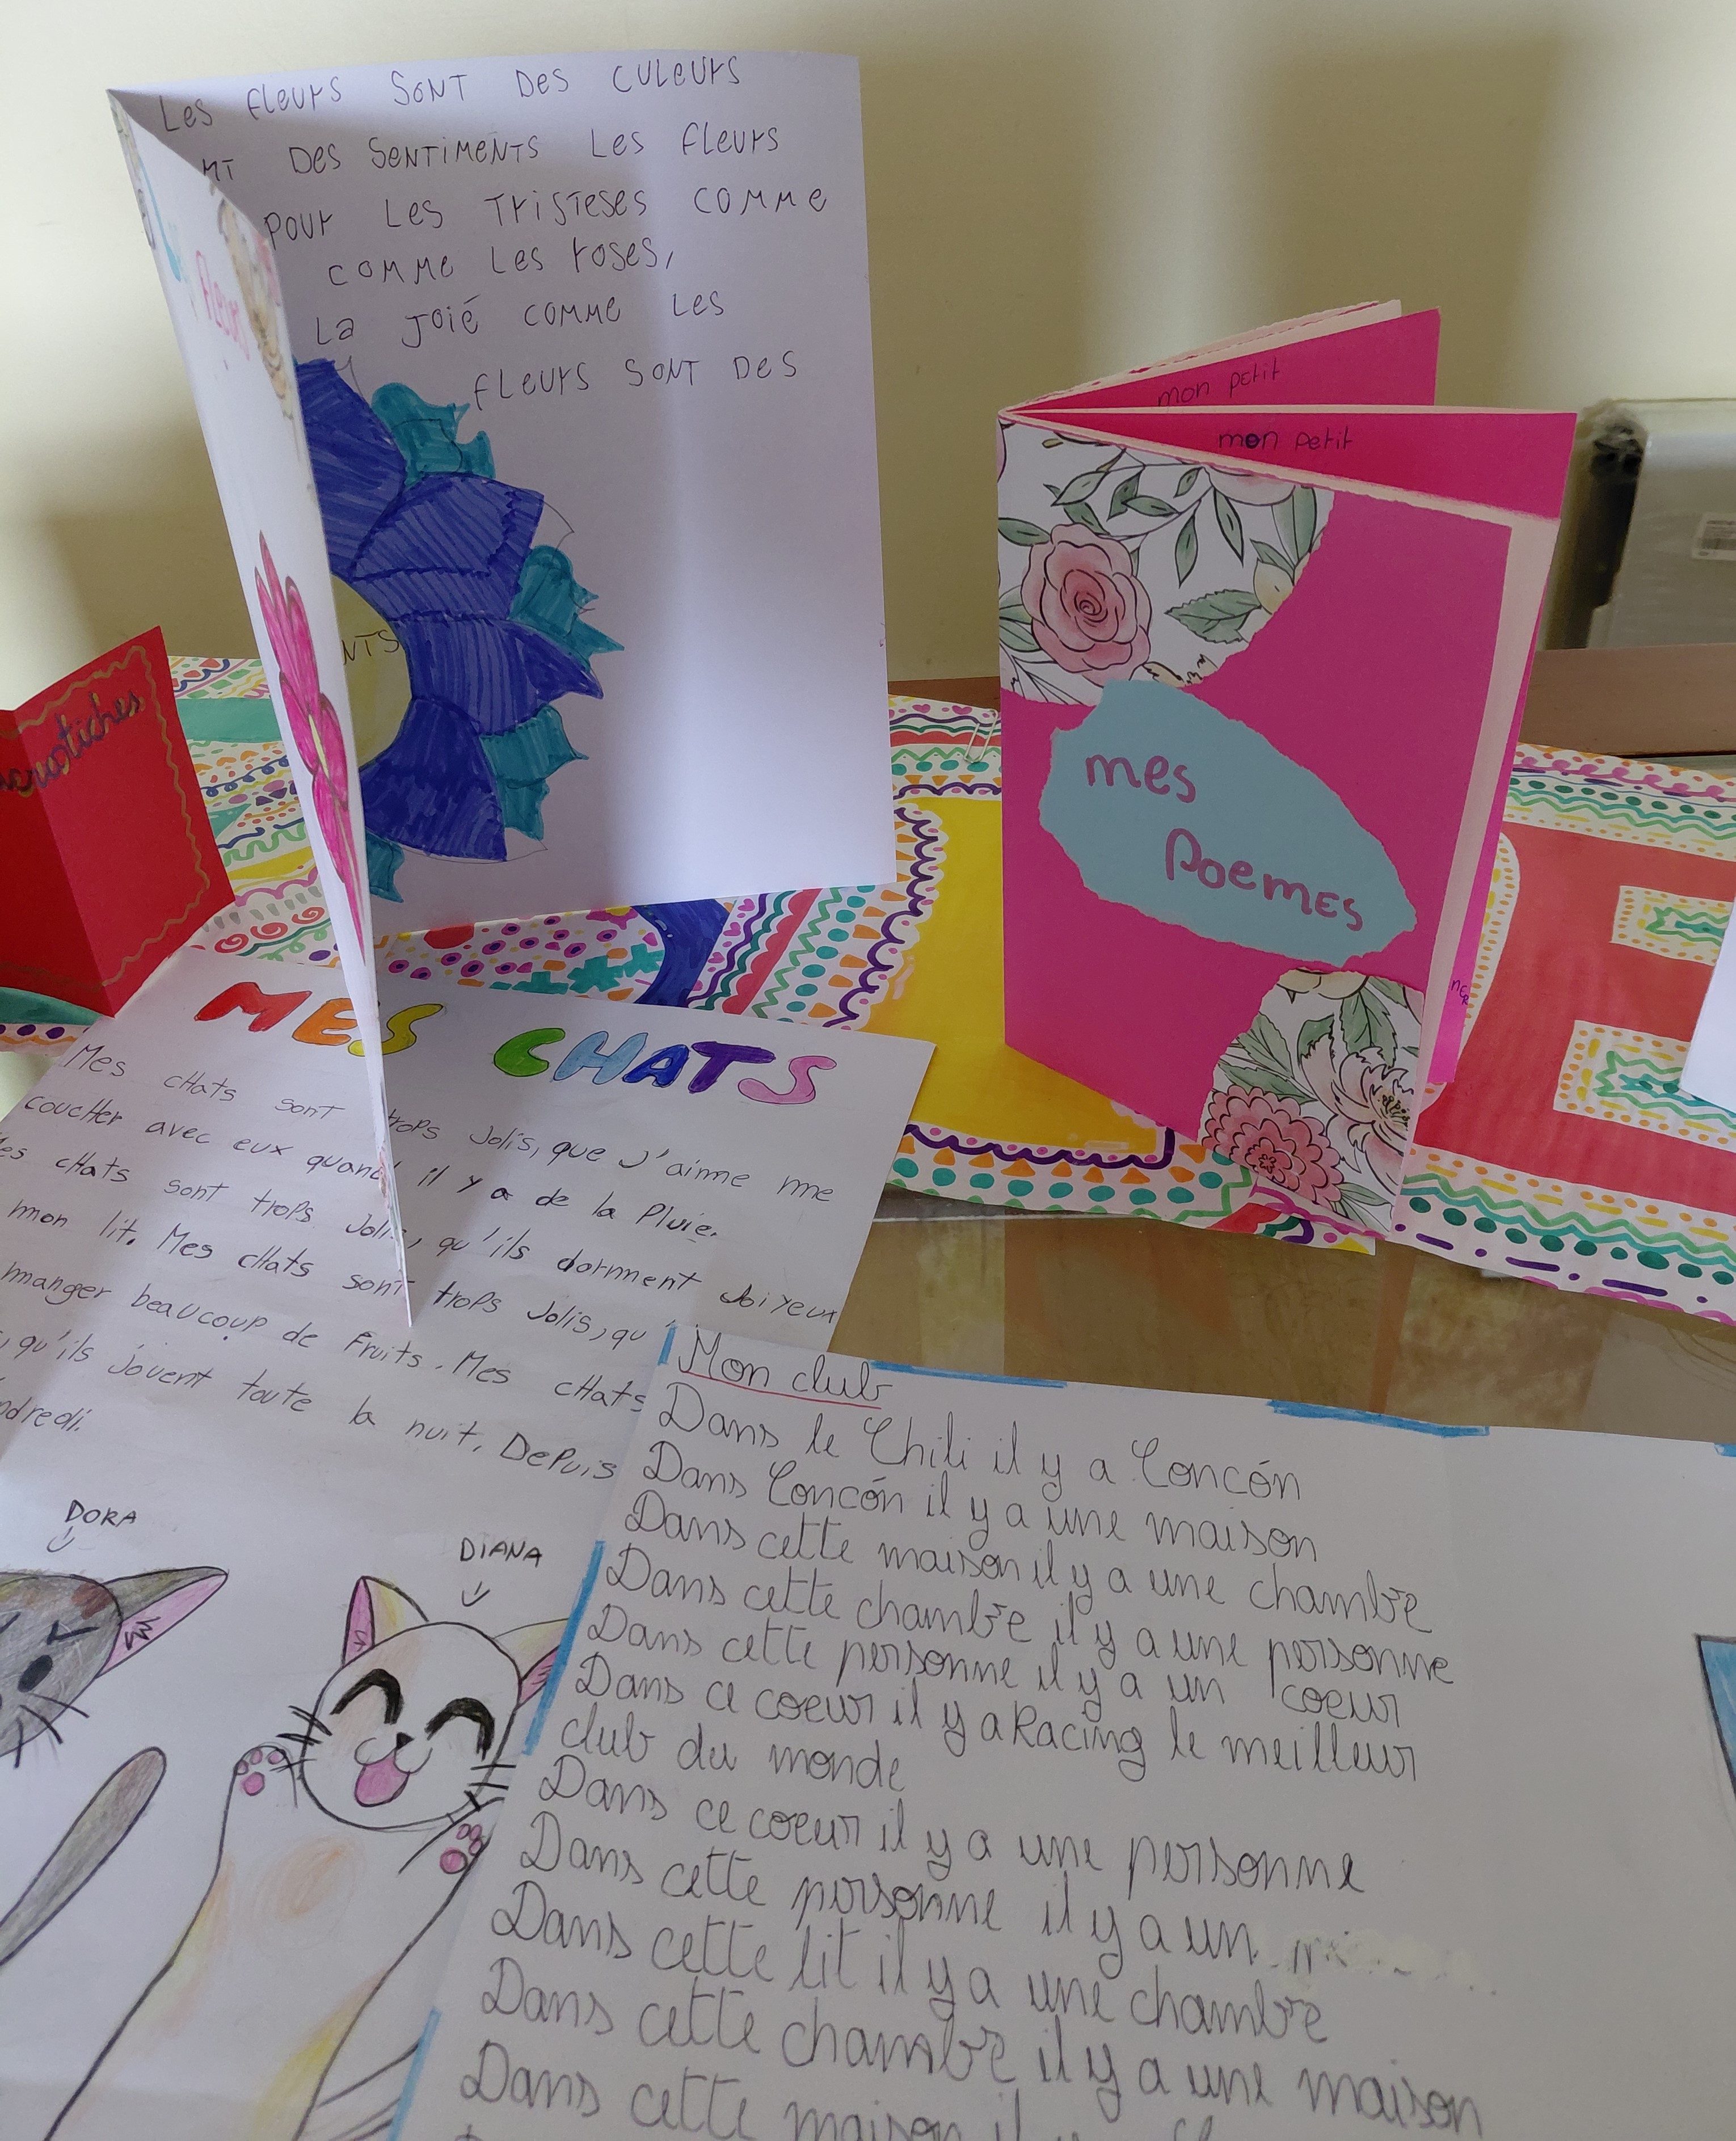 Les fleurs sont des culeurs
des sentiments les fleurs
pour les tristeses comme
comme les roses,
la joié comme les
fleurs sont des
fleurs
NTS
acrostiches
mon petit
mon petit
mes
poemes
MES CHATS
Mes chats sont trops jolis, que j'aime me
coucher avec eux quand il y a de la pluie.
chats sont trops jolis, qu'ils dorment joiyeux
mon lit. Mes chats sont trops jolis, qu'
manger beaucoup de fruits. Mes chats
qu'ils jouent toute la nuit. Depuis
ndredi.
DORA
DIANA
Mon club
Dans le Chili il y a Concón
Dans Concón il y a une maison
Dans cette maison il y a une chambre
Dans cette chambre il y a une personne
Dans cette personne il y a un coeur
Dans ce coeur il y a Racing le meilleur
club du monde
Dans ce coeur il y a une personne
Dans cette personne il y a un
Dans cette lit il y a une chambre
Dans cette chambre il y a une maison
Dans cette maison il y